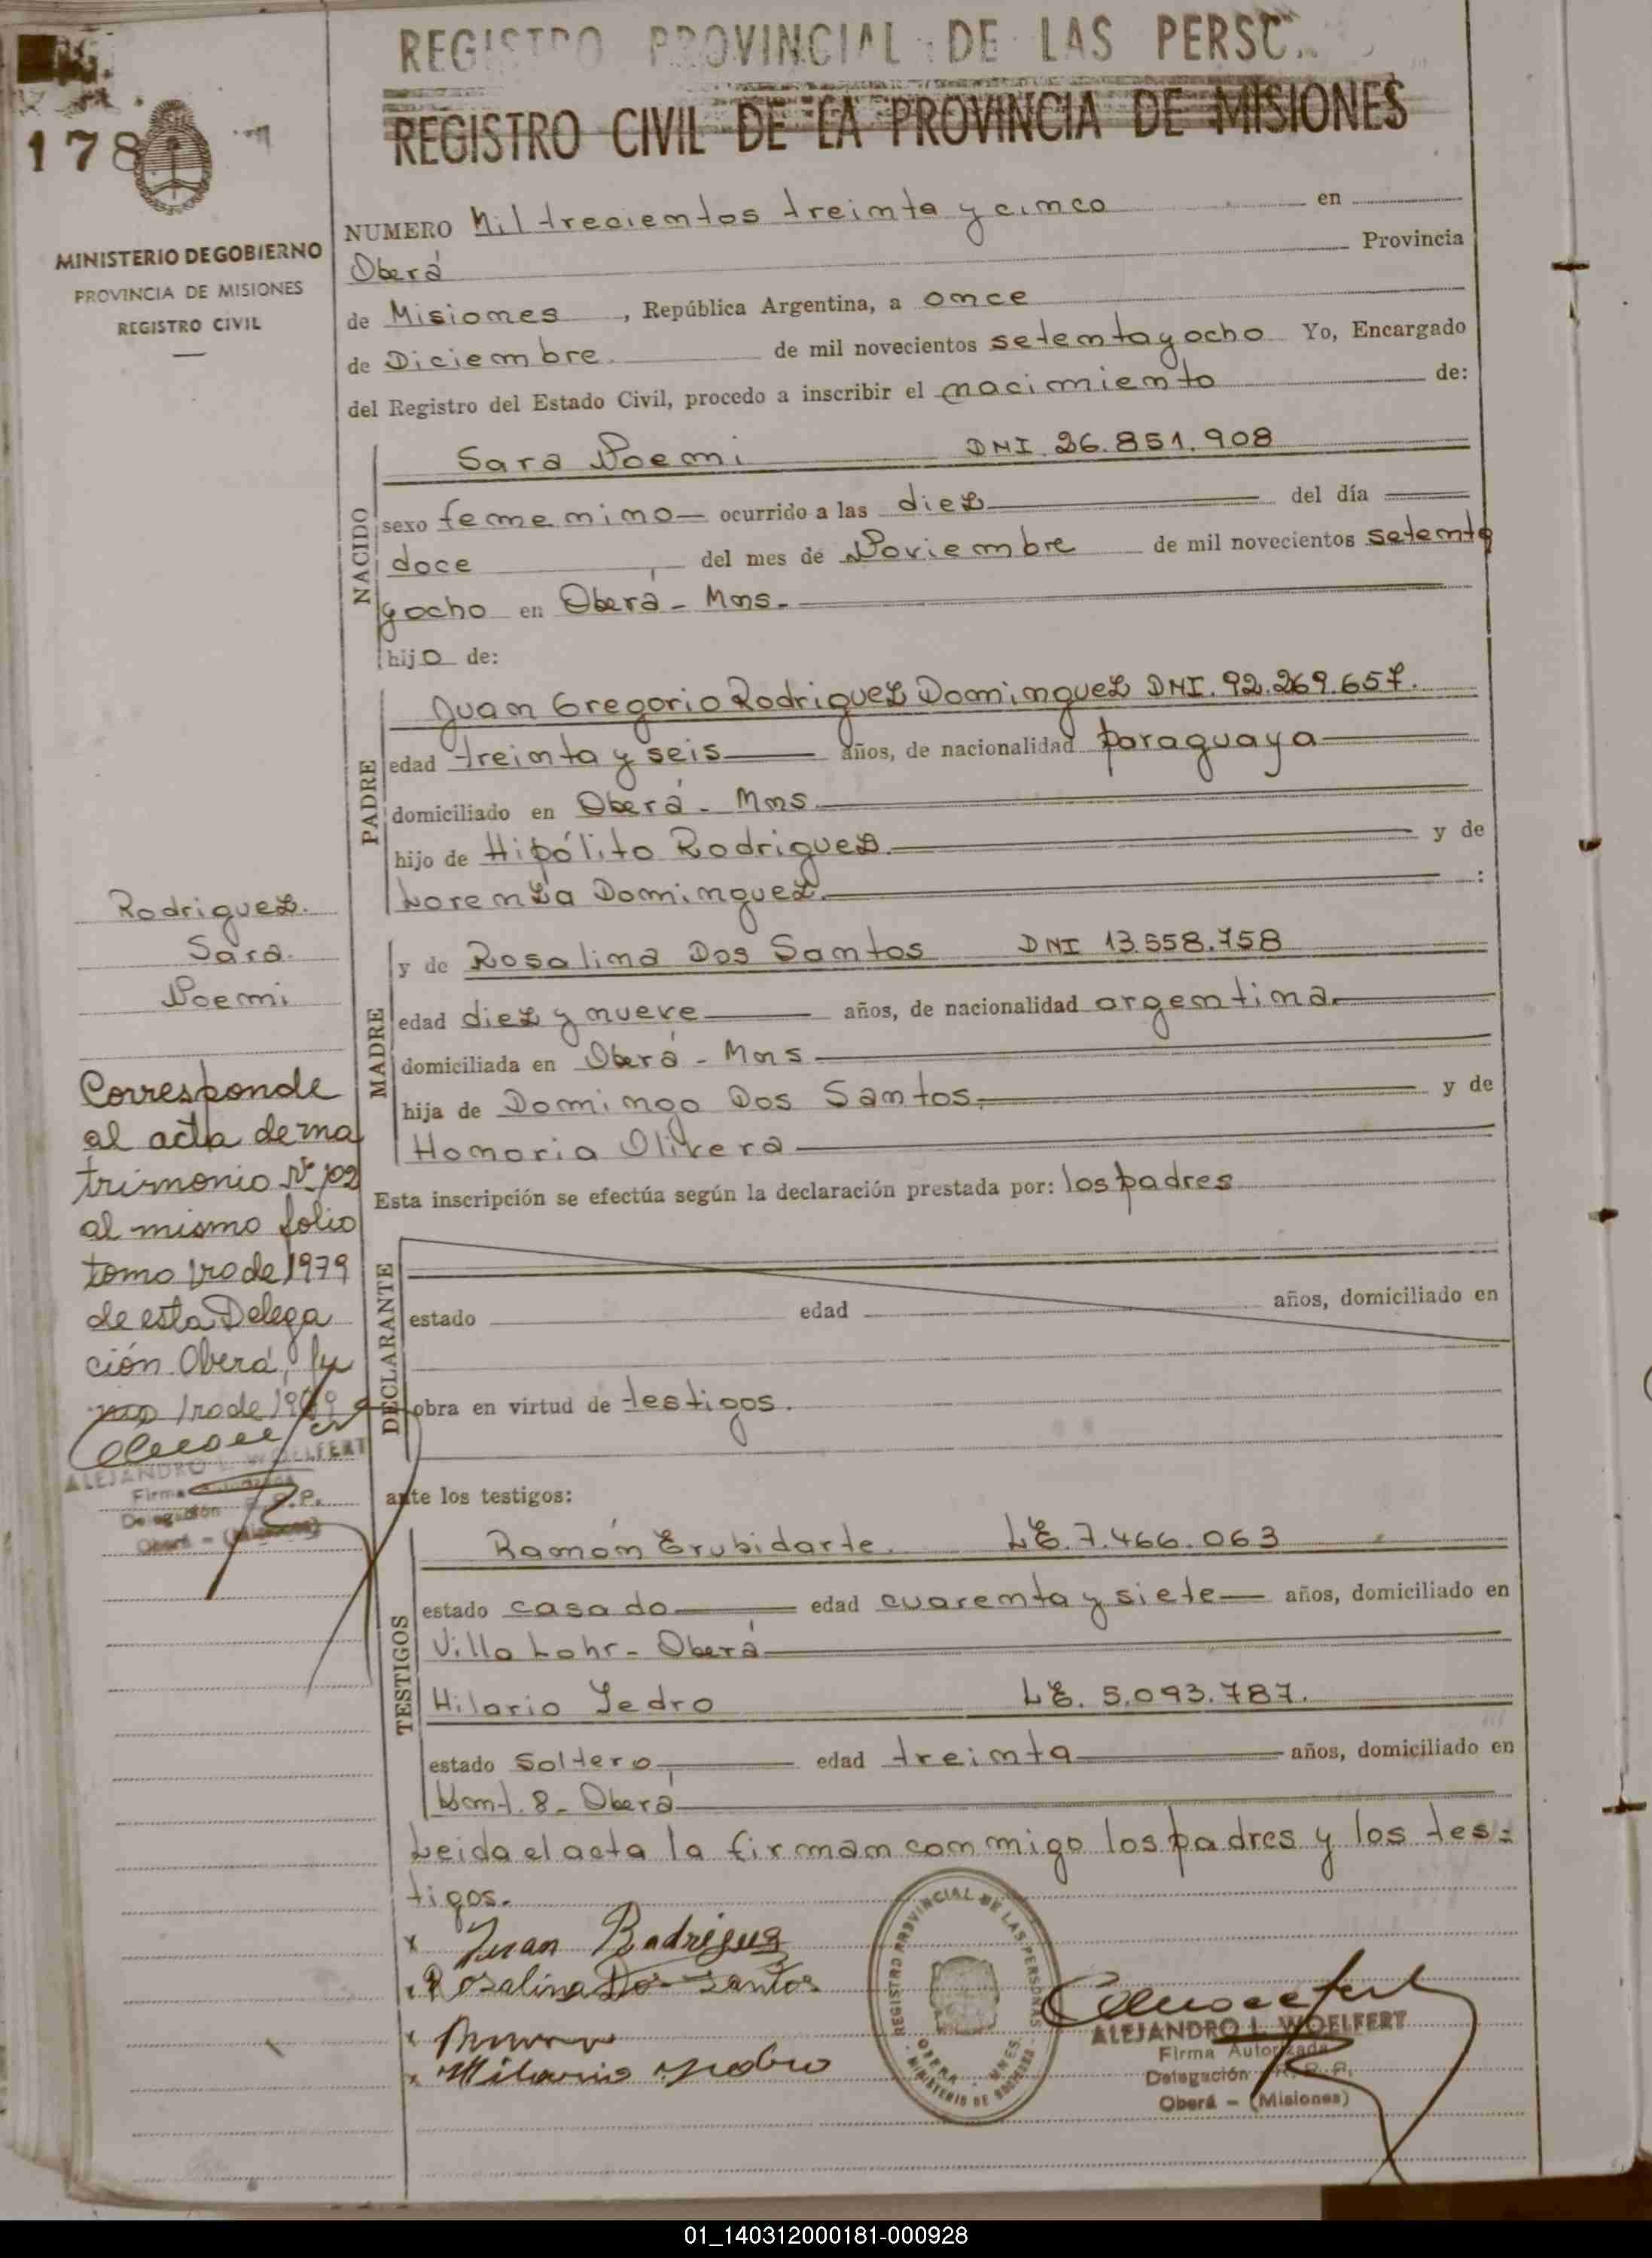 REGISTRO PROVINCIAL DE LAS PERSO
REGISTRO CIVIL DE LA PROVINCIA DE MISIONES
178
MINISTERIO DE GOBIERNO
PROVINCIA DE MISIONES
REGISTRO CIVIL
NUMERO Mil trecientos treinta y cinco en
Oberá Provincia
de Misiones, República Argentina, a once
de Diciembre. de mil novecientos setenta y ocho Yo, Encargado
del Registro del Estado Civil, procedo a inscribir el nacimiento de:
NACIDO
Sara Noemi DNI. 26.851.908
sexo femenino ocurrido a las diez del día
doce, del mes de Noviembre de mil novecientos setenta
y ocho en Oberá - Mns.
hijo de:
PADRE
Juan Gregorio Rodriguez Dominguez DNI. 92.269.657.
edad treinta y seis años, de nacionalidad paraguaya
domiciliado en Oberá - Mns
hijo de Hipólito Rodriguez. y de
Lorenza Dominguez. :
Rodriguez.
Sara
Noemi
MADRE
y de Rosalina Dos Santos DNI 13.558.758
edad diez y nueve años, de nacionalidad argentina.
domiciliada en Oberá - Mns
hija de Domingo Dos Santos, y de
Honoria Olivera
Esta inscripción se efectúa según la declaración prestada por: los padres
Corresponde
al acta de ma
trimonio Nº 102
al mismo folio
tomo 1ro de 1979
de esta Delega
ción Oberá,
1ro de 19
ALEJANDRO L. WOELFERT
Firma Autorizada
Delegación R. P. P.
Oberá - (Misiones)
DECLARANTE
estado edad años, domiciliado en
obra en virtud de testigos.
ante los testigos:
TESTIGOS
Ramón Erubidarte. L.E. 7.466.063
estado casado, edad cuarenta y siete años, domiciliado en
Villa Lohr - Oberá
Hilario Yedro L.E. 5.093.787.
estado soltero, edad treinta años, domiciliado en
8 - Oberá
Leida el acta la firman conmigo los padres y los tes=
tigos.
x Juan Rodriguez
x Rosalina Dos Santos
x
x Hilario Yedro
REGISTRO PROVINCIAL DE LAS PERSONAS
OBERA - MNES.
MINISTERIO DE GOBIERNO
ALEJANDRO L. WOELFERT
Firma Autorizada
Delegación R. P. P.
Oberá - (Misiones)
01_140312000181-000928